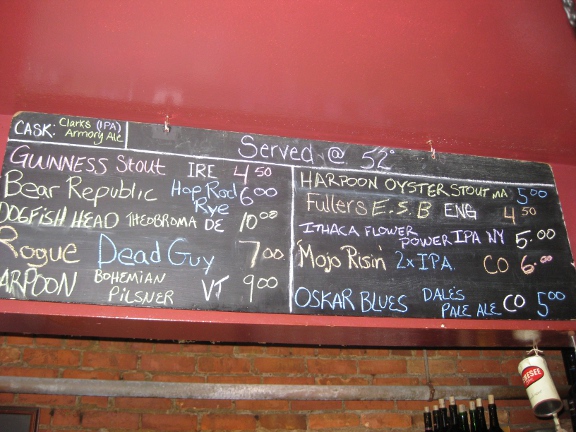 CASK: Clarks (IPA)
Armory Ale
Served @ 52°
GUINNESS STOUT IRE 4 50
Bear Republic Hop Rod Rye 6 00
DOGFISH HEAD THEOBROMA DE 10 00
Rogue Dead Guy 7 00
ARPOON BOHEMIAN PILSNER VT 9 00
HARPOON OYSTER STOUT MA 5 00
Fullers E.S.B ENG 4 50
ITHACA FLOWER POWER IPA NY 5.00
Mojo Risin' 2x IPA CO 6.00
OSKAR BLUES DALES PALE ALE CO 5 00